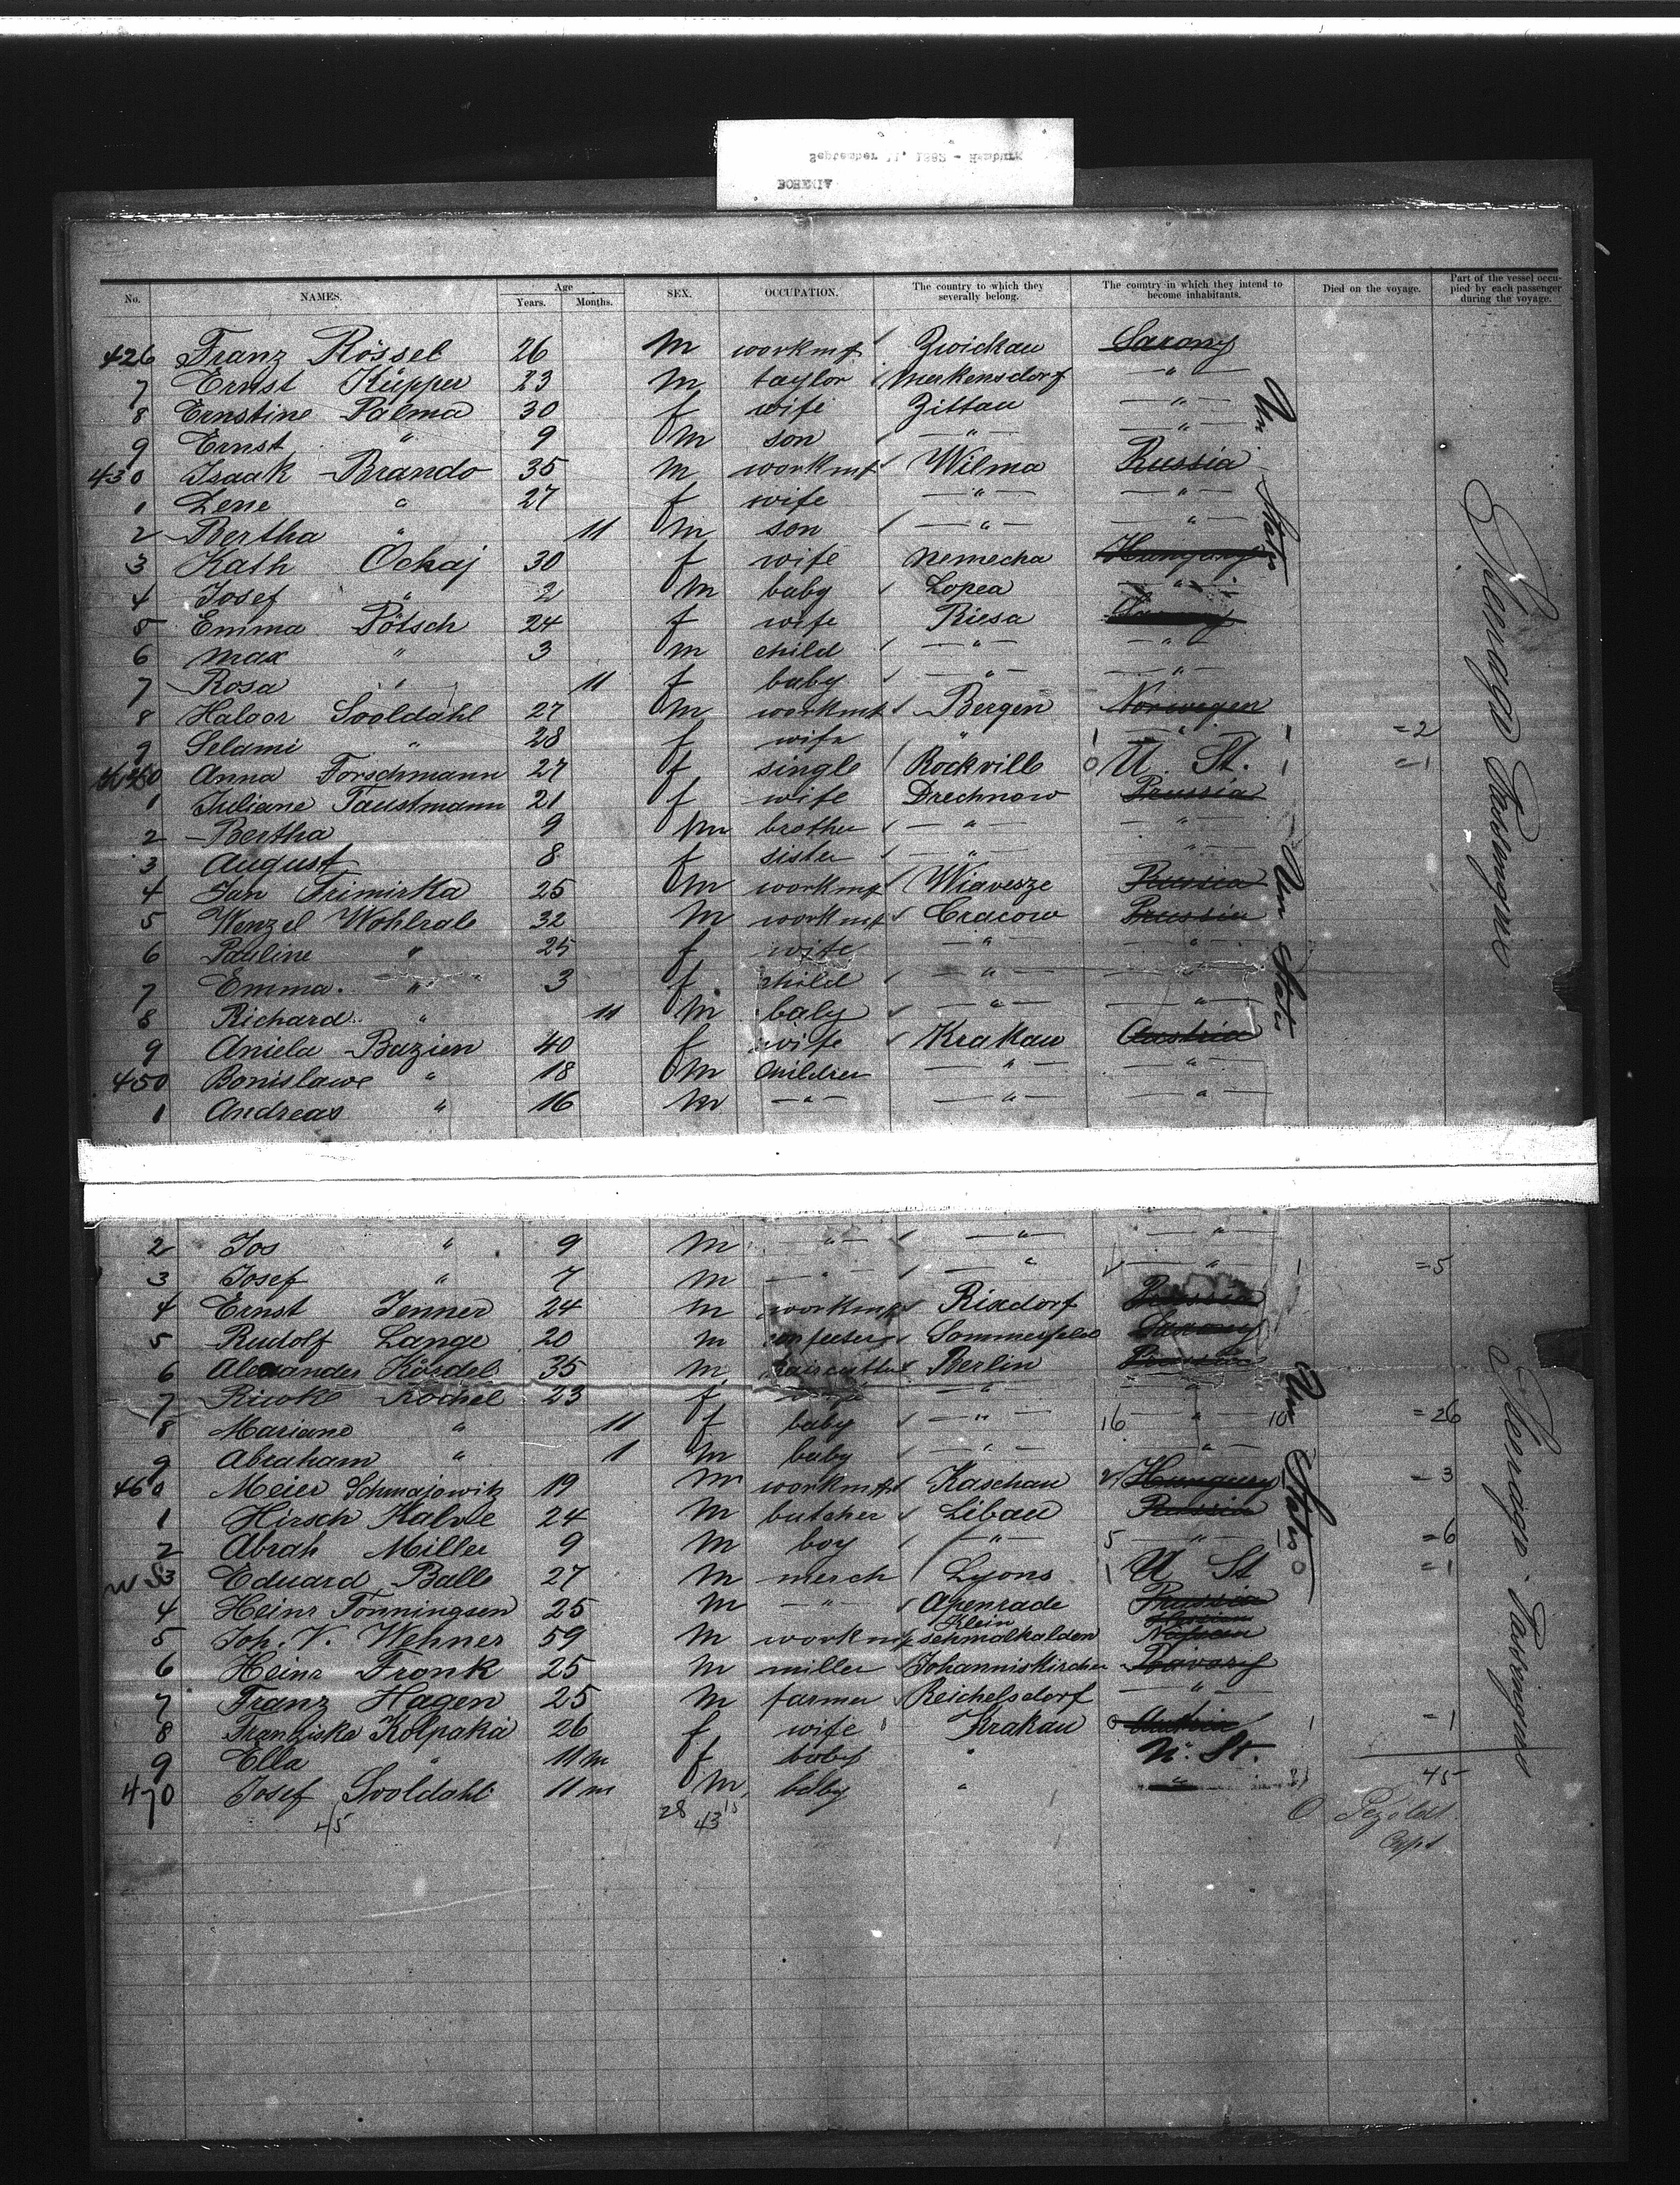 September 11, 1882 - Hamburg
BOHEMIA
No. NAMES. Age Years. Months. SEX. OCCUPATION. The country to which they severally belong. The country in which they intend to become inhabitants. Died on the voyage. Part of the vessel occupied by each passenger during the voyage.
426 Franz Rössel 26 m workmf Zwickau Saxony
7 Ernst Küpper 23 m taylor Merkensdorf — " —
8 Ernstine Palma 30 f wife Zittau — " —
9 Ernst " 9 m son — " — — " —
430 Isaak Brando 35 m workmf Wilma Russia
1 Lene " 27 f wife — " — — " —
2 Bertha " 11 m son — " — — " —
3 Kath Ochaj 30 f wife Nemecha Hungary
4 Josef " 2 m baby Lopea — " —
5 Emma Pötsch 24 f wife Riesa
6 Max " 3 m child — " — — " —
7 Rosa " 11 f baby — " — — " —
8 Haloor Sooldahl 27 m workmf Bergen Norwegen
9 Selami " 28 f wife " — " — =2
440 Anna Forschmann 27 f single Rockville 0 U. St. 1 =1
1 Juliane Faustmann 21 f wife Drechnow Prussia
2 Bertha 9 m brother — " — — " —
3 August 8 f sister — " — — " —
4 Jan Trimirka 25 m workmf Wiavesze Russia
5 Wenzel Wohlrab 32 m workmf Cracow Prussia
6 Pauline " 25 f wife — " — — " —
7 Emma " 3 f child — " — — " —
8 Richard " 11 m baby — " — — " —
9 Aniela Bazien 40 f wife Krakau Austria
450 Bonislawe " 18 m children — " — — " —
1 Andreas " 16 m — " — — " — — " —
2 Jos " 9 m — " — — " — — " —
3 Josef " 7 m — " — — " — — " — 1 =5
4 Ernst Jenner 24 m workmf Rixdorf Prussia
5 Rudolf Lange 20 m Sommerfeld Saxony
6 Alexander Kösdel 35 m haircutter Berlin Prussia
7 Riwke Rochel 23 f — " — "
8 Mariane " 11 f baby — " — 16 — " — 10 =26
9 Abraham " 1 m baby — " — — " —
460 Meier Schmajowitz 19 m workmf Kaschau Hungary =3
1 Hirsch Kalwe 24 m butcher Libau Russia
2 Abrah Miller 9 m boy — " — 5 — " — 1 =6
3 Eduard Balle 27 m merch Lyons 1 U St 0 =1
4 Heinr Tonningsen 25 m — " — Apenrade Prussia
5 Joh. V. Wehner 59 m workmf Klein Schmalkalden Hessian Nassau
6 Heinr Fronk 25 m miller Johanniskirchen Bavary
7 Franz Hagen 25 m farmer Reichelsdorf — " —
8 Franziska Kolpakia 26 f wife Krakau 0 Austria 1 =1
9 Ella " 11 m f baby " U. St.
470 Josef Sooldahl 11 m m baby " "
45
45 28 43 15
O Pezoldt
Capt
Un. States
Un States
Un States
Steerage Passengers
Steerage Passengers